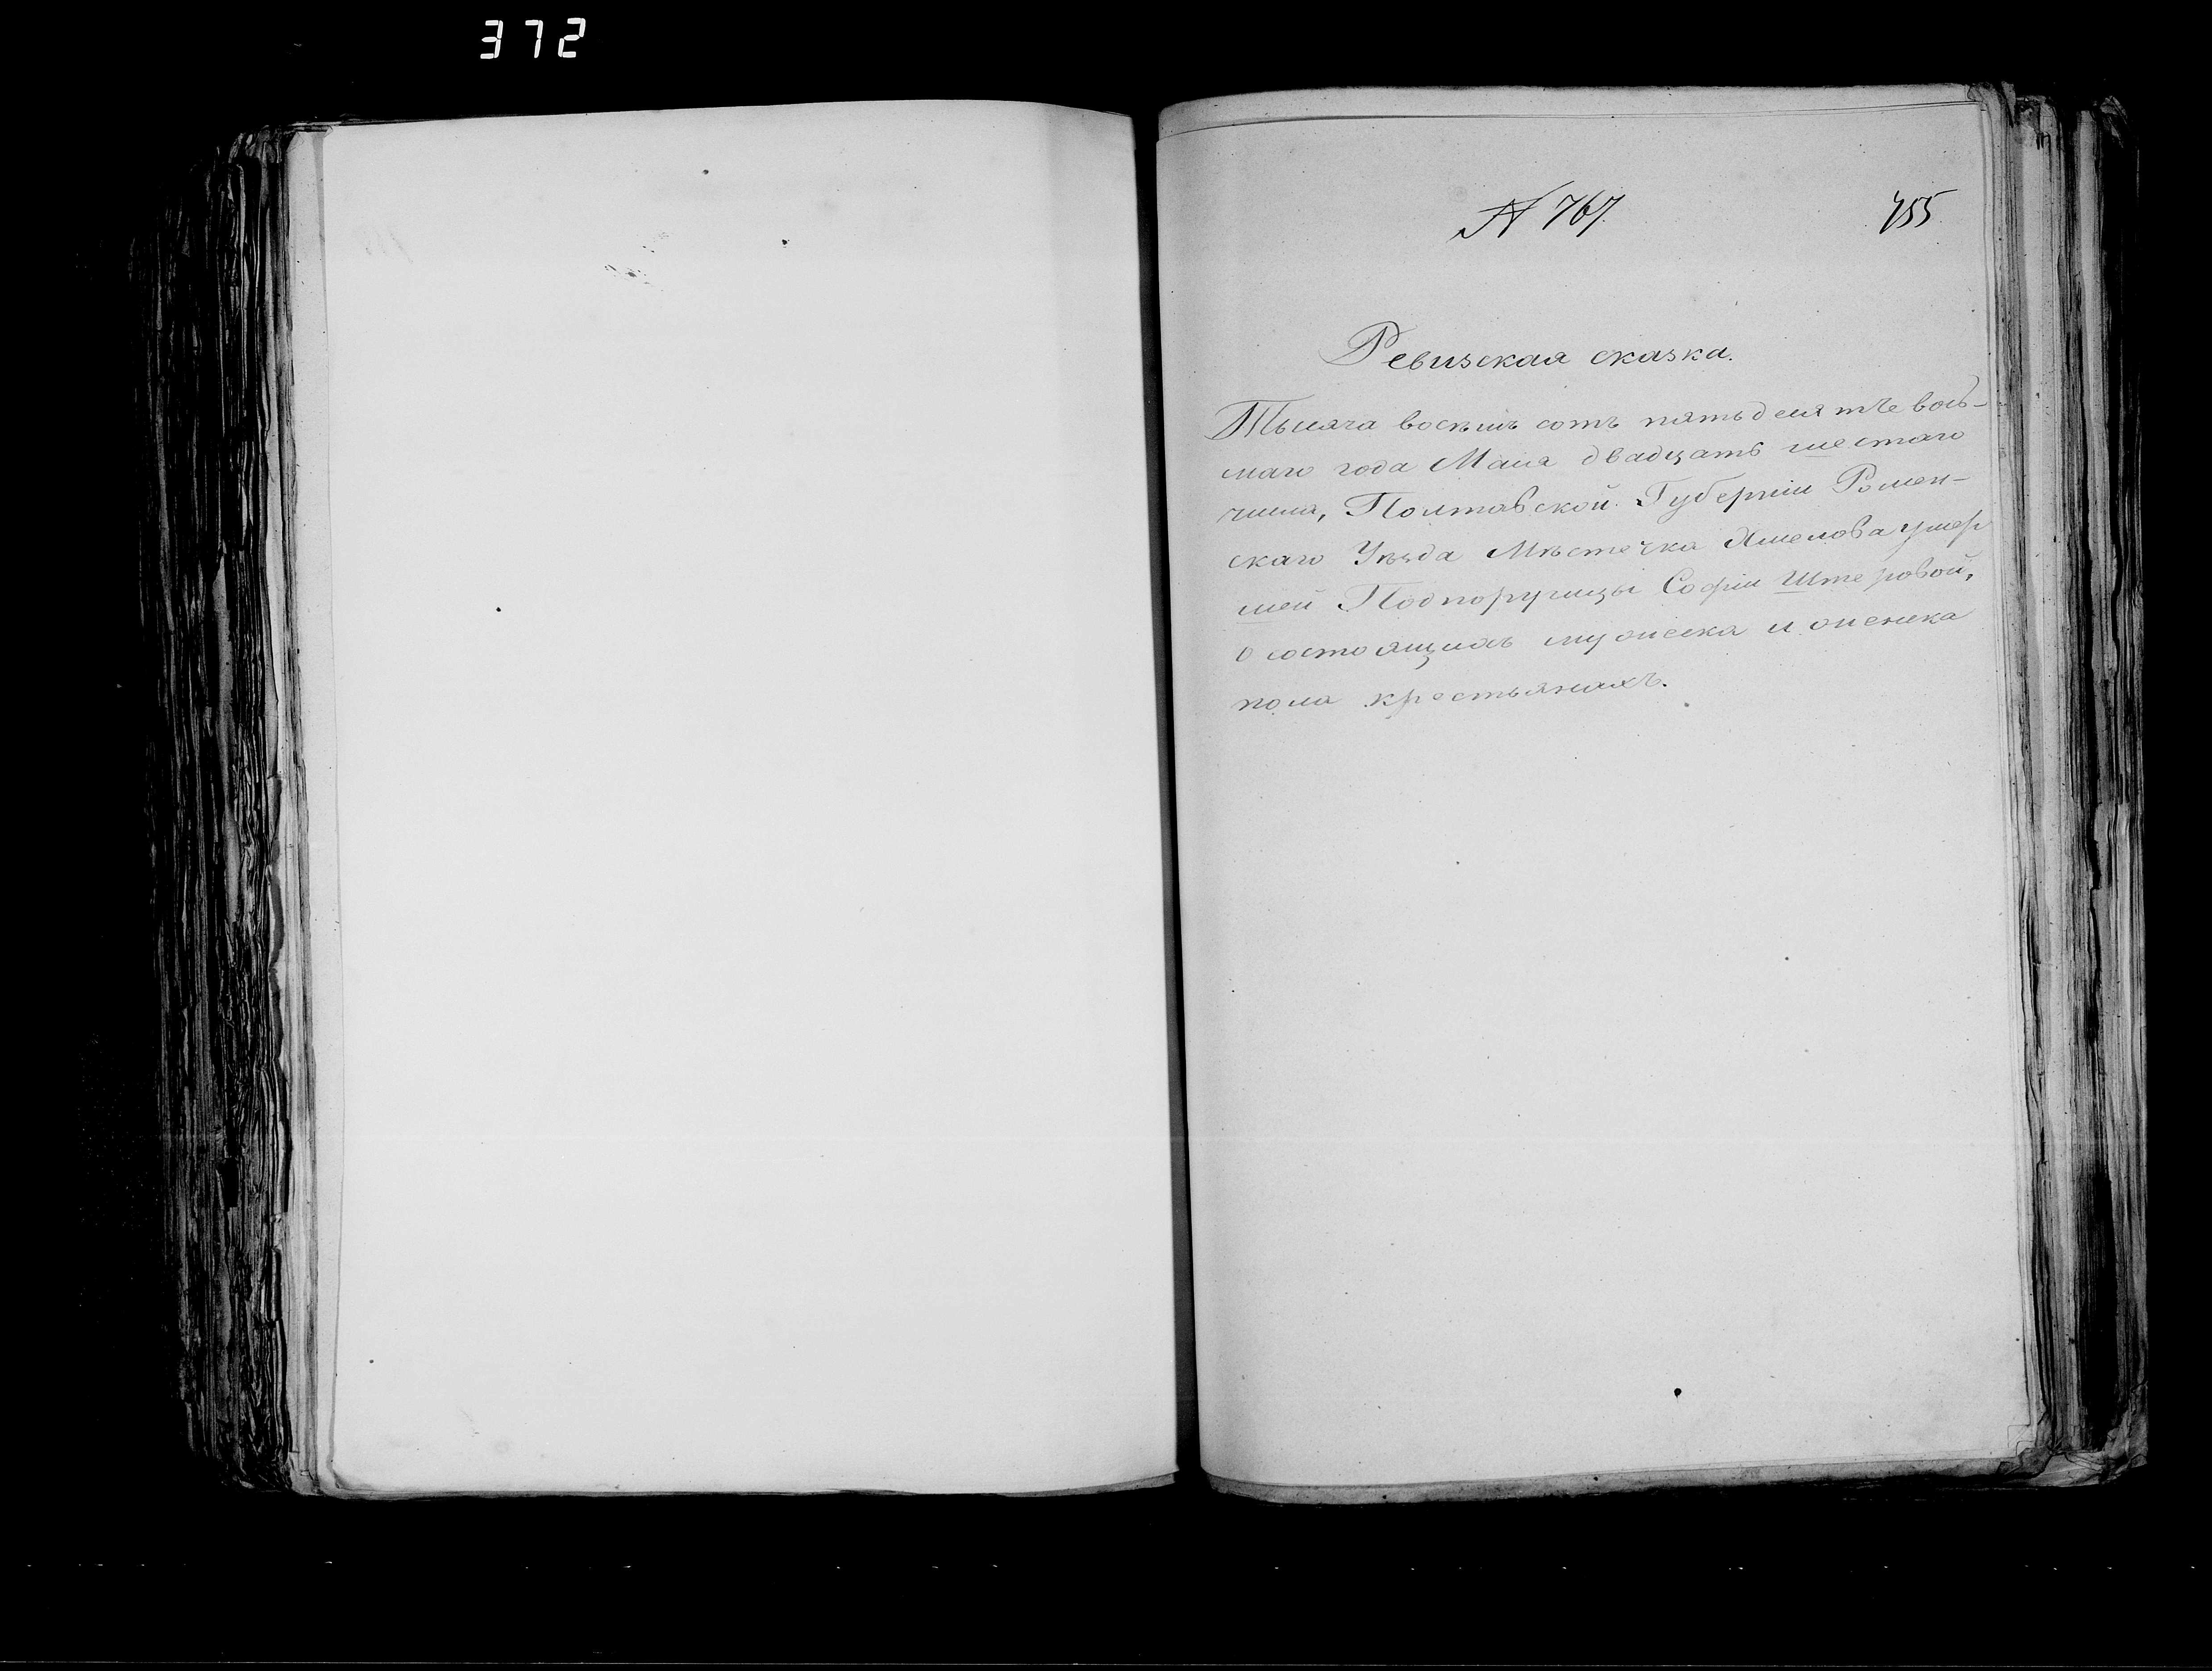 372
№ 767.
755
Ревизская сказка.
Тысяча восемь сотъ пятьдесятъ вось-
маго года Маія двадцать шестаго
числа, Полтавской Губерніи Ромен-
скаго Уѣзда Мѣстечка Хмелова умер
шей Подпоручицы Софіи Штеровой,
о состоящихъ мужеска и женска
пола крестьянахъ.